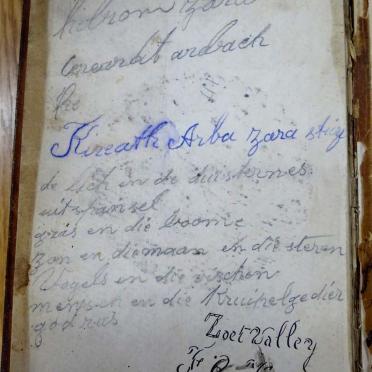 hebrom zara
arbach
Kireath Arba zara
de licht en de duisternes
uitspansel
gras en die boome
zon en die maan en die steren
Vogels en die visschen
mensen en die Kruipelgedier
god rus
Zoet Valley